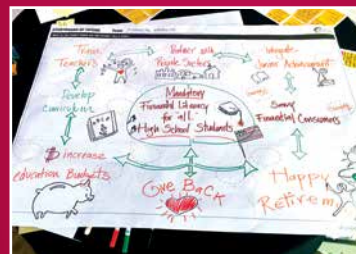 Train
Teachers
Partner with
Private Sectors
Integrate
Career Advancement
Develop
curriculum
Mandatory
Financial Literacy
for all
High School Students
Savvy
Financial Consumers
$ increase
education Budgets
Give Back
Happy
Retirem